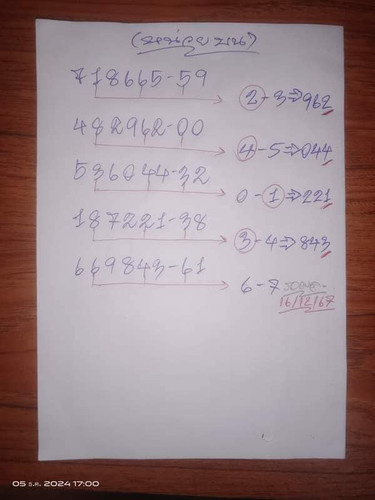 718665-59
②-3⇒962
482962-00
④-5⇒044
536044-32
0-①⇒221
187221-38
③-4⇒843
669843-61
6-7
16/12/67
05 ธ.ค. 2024 17:00